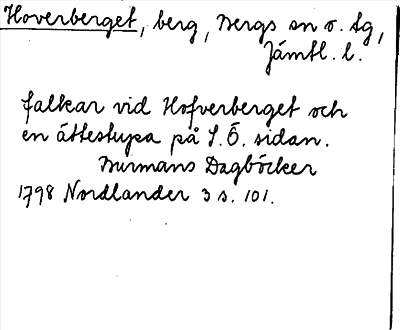 Hoverberget, berg, Bergs sn o. tg,
Jämtl. l.
falkar vid Hofverberget och
en ättestupa på S.Ö. sidan.
Burmans Dagböcker
1798 Nordlander 3 s. 101.